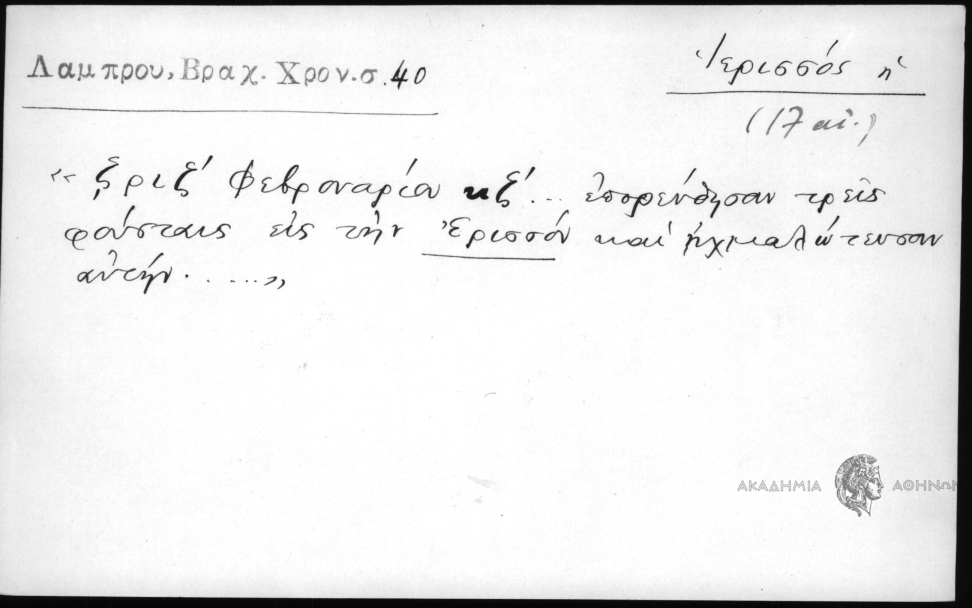 Λαμπρου, Βραχ. Χρον. σ. 40
Ἱερισσός ἡ
(17 αἰ.)
« ζριζ΄ Φεβρουαρίου κζ΄... ἐπορεύθησαν τρεῖς
φούσταις εἰς τὴν Ἐρισσὸν καὶ ᾐχμαλώτευσαν
αὐτήν. . ....»
ΑΚΑΔΗΜΙΑ ΑΘΗΝΩΝ